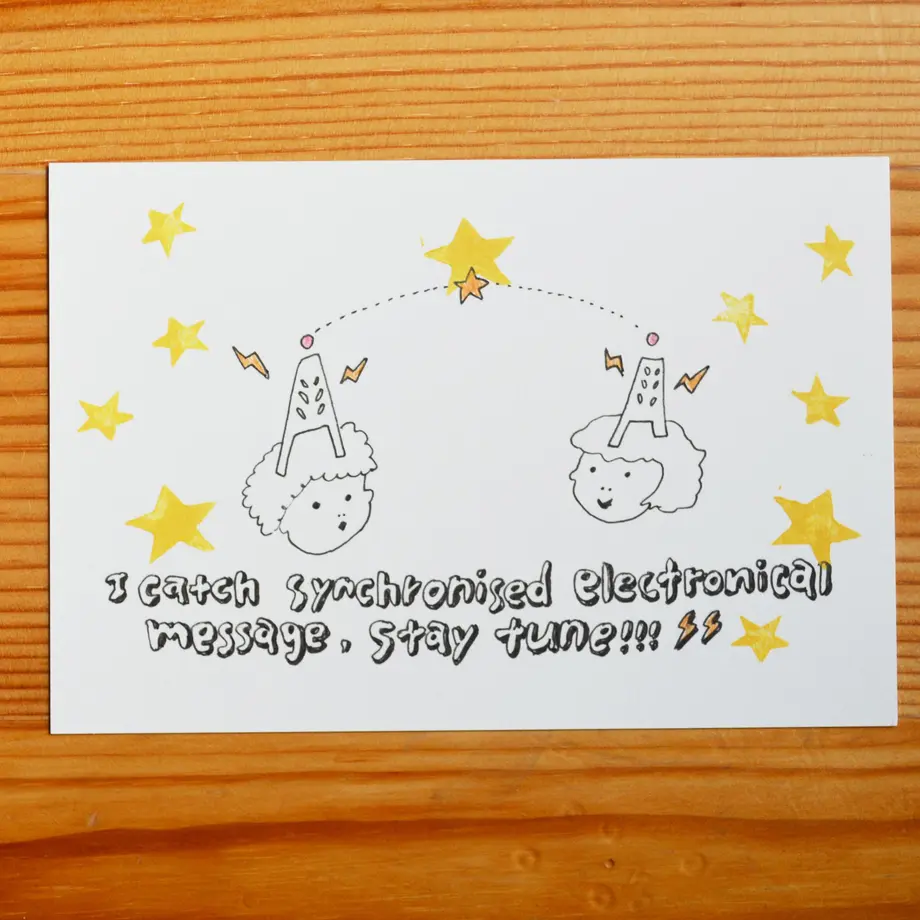 I catch synchronised electronical
message, stay tune!!!